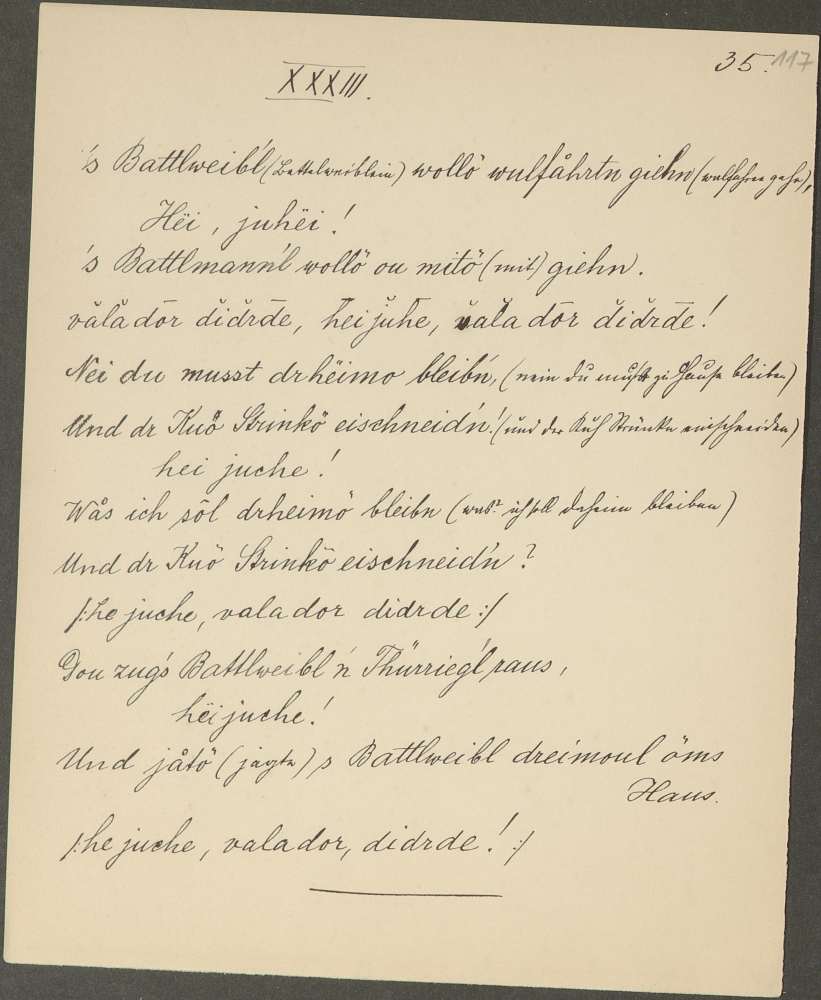 35. 117
XXXIII.
's Battlweib'l (Bettelweiblein) wollö wulfåhrtn giehn (wulfahren gehn),
Hëi, juhëi!
's Battlmann'l wollö ou mitö (mit) giehn.
vălă dōr dĭdrdē, hei juhe, vala dōr dĭdrdē!
Nei du musst drhëimo bleib'n, (nein du mußt zu Hause bleiben)
Und dr Kuö Strinkö eischneid'n! (und der Kuh Strünke einschneiden)
hei juche!
Wås ich söl drheimö bleibn (was? ich soll daheim bleiben)
Und dr Kuö Strinkö eischneid'n?
/: he juche, valador didrde :/
Dou zug's Battlweibl 'n Thürrieg'l raus,
hëi juche!
Und jåtö (jagte) 's Battlweibl dreimoul öms
Haus.
/: he juche, valador, didrde! :/